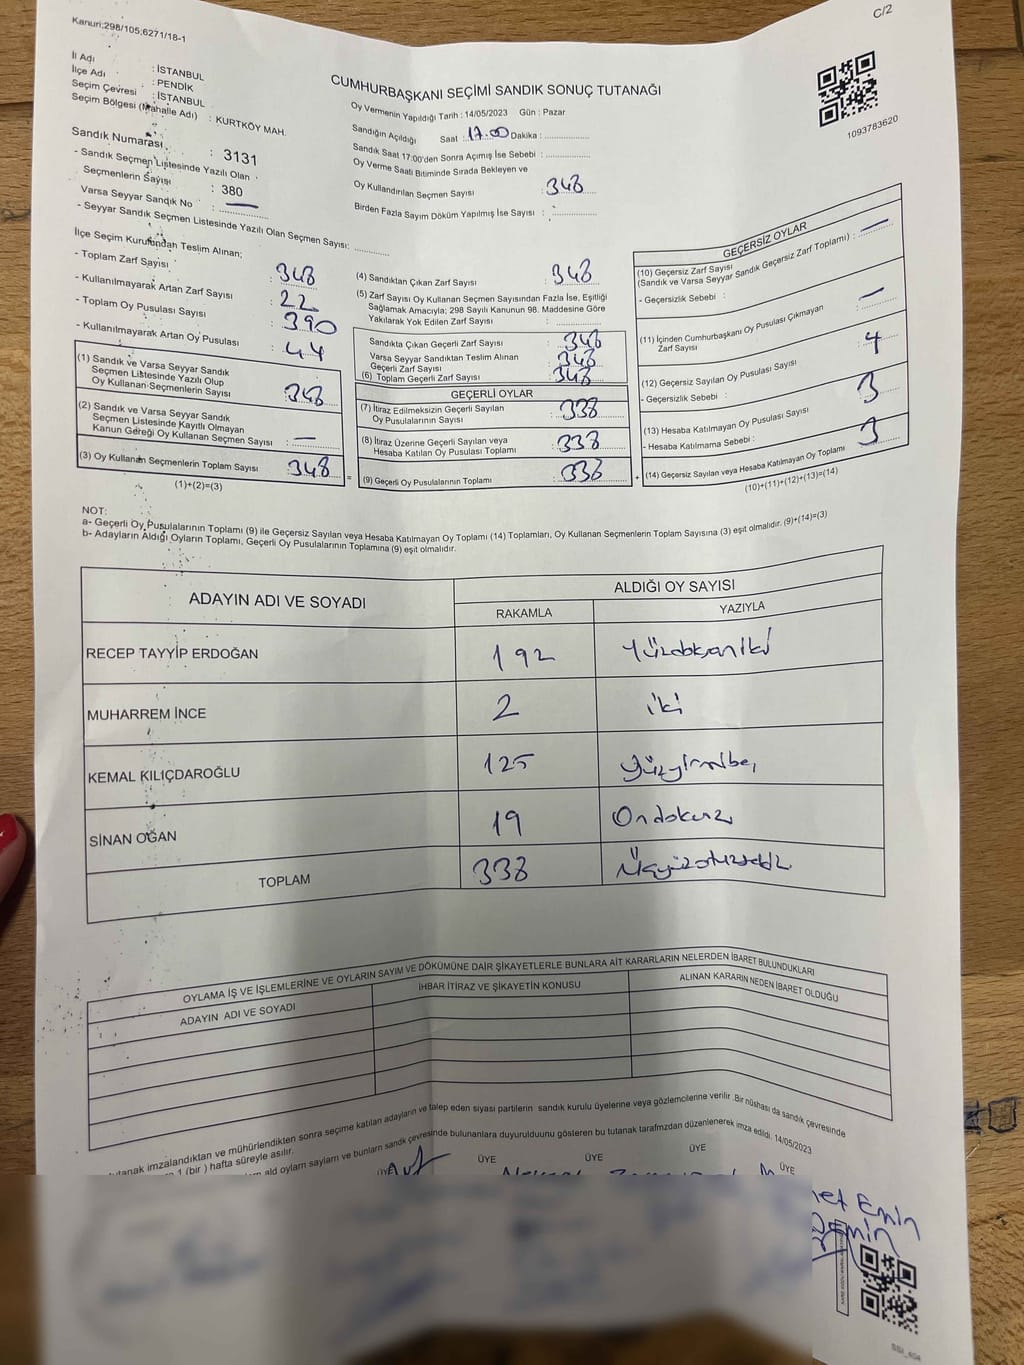 C/2
Kanun;298/105;6271/18-1
İl Adı : İSTANBUL
İlçe Adı : PENDİK
Seçim Çevresi : İSTANBUL
Seçim Bölgesi (Mahalle Adı) : KURTKÖY MAH.
Sandık Numarası : 3131
- Sandık Seçmen Listesinde Yazılı Olan
Seçmenlerin Sayısı : 380
Varsa Seyyar Sandık No : —
- Seyyar Sandık Seçmen Listesinde Yazılı Olan Seçmen Sayısı:
CUMHURBAŞKANI SEÇİMİ SANDIK SONUÇ TUTANAĞI
Oy Vermenin Yapıldığı Tarih : 14/05/2023 Gün : Pazar
Sandığın Açıldığı Saat : 17.00 Dakika :
Sandık Saat 17:00'den Sonra Açımış İse Sebebi :
Oy Verme Saati Bitiminde Sırada Bekleyen ve
Oy Kullandırılan Seçmen Sayısı : 348
Birden Fazla Sayım Döküm Yapılmış İse Sayısı :
1093783620
İlçe Seçim Kurulundan Teslim Alınan;
- Toplam Zarf Sayısı : 348
- Kullanılmayarak Artan Zarf Sayısı : 22
- Toplam Oy Pusulası Sayısı : 390
- Kullanılmayarak Artan Oy Pusulası : 44
(1) Sandık ve Varsa Seyyar Sandık
Seçmen Listesinde Yazılı Olup
Oy Kullanan Seçmenlerin Sayısı : 348
(2) Sandık ve Varsa Seyyar Sandık
Seçmen Listesinde Kayıtlı Olmayan
Kanun Gereği Oy Kullanan Seçmen Sayısı : —
(3) Oy Kullanan Seçmenlerin Toplam Sayısı 348
(1)+(2)=(3)
(4) Sandıktan Çıkan Zarf Sayısı : 348
(5) Zarf Sayısı Oy Kullanan Seçmen Sayısından Fazla İse, Eşitliği
Sağlamak Amacıyla; 298 Sayılı Kanunun 98. Maddesine Göre
Yakılarak Yok Edilen Zarf Sayısı :
Sandıkta Çıkan Geçerli Zarf Sayısı : 348
Varsa Seyyar Sandıktan Teslim Alınan
Geçerli Zarf Sayısı : 348
(6) Toplam Geçerli Zarf Sayısı 348
GEÇERLİ OYLAR
(7) İtiraz Edilmeksizin Geçerli Sayılan
Oy Pusulalarının Sayısı : 338
(8) İtiraz Üzerine Geçerli Sayılan veya
Hesaba Katılan Oy Pusulası Toplamı : 338
=
(9) Geçerli Oy Pusulalarının Toplamı : 338
+
GEÇERSİZ OYLAR
(10) Geçersiz Zarf Sayısı
(Sandık ve Varsa Seyyar Sandık Geçersiz Zarf Toplamı) : —
- Geçersizlik Sebebi :
(11) İçinden Cumhurbaşkanı Oy Pusulası Çıkmayan
Zarf Sayısı : —
(12) Geçersiz Sayılan Oy Pusulası Sayısı : 4
- Geçersizlik Sebebi :
(13) Hesaba Katılmayan Oy Pusulası Sayısı : 3
- Hesaba Katılmama Sebebi :
(14) Geçersiz Sayılan veya Hesaba Katılmayan Oy Toplamı 3
(10)+(11)+(12)+(13)=(14)
NOT:
a- Geçerli Oy Pusulalarının Toplamı (9) ile Geçersiz Sayılan veya Hesaba Katılmayan Oy Toplamı (14) Toplamları, Oy Kullanan Seçmenlerin Toplam Sayısına (3) eşit olmalıdır. (9)+(14)=(3)
b- Adayların Aldığı Oyların Toplamı, Geçerli Oy Pusulalarının Toplamına (9) eşit olmalıdır.
ADAYIN ADI VE SOYADI
ALDIĞI OY SAYISI
RAKAMLA YAZIYLA
RECEP TAYYİP ERDOĞAN 192 Yüzdoksaniki
MUHARREM İNCE 2 iki
KEMAL KILIÇDAROĞLU 125 yüzyirmibeş
SİNAN OĞAN 19 Ondokuz
TOPLAM 338 üçyüzotuzsekiz
OYLAMA İŞ VE İŞLEMLERİNE VE OYLARIN SAYIM VE DÖKÜMÜNE DAİR ŞİKAYETLERLE BUNLARA AİT KARARLARIN NELERDEN İBARET BULUNDUKLARI
ADAYIN ADI VE SOYADI İHBAR İTİRAZ VE ŞİKAYETİN KONUSU ALINAN KARARIN NEDEN İBARET OLDUĞU
tutanak imzalandıktan ve mühürlendikten sonra seçime katılan adayların ve talep eden siyasi partilerin sandık kurulu üyelerine veya gözlemcilerine verilir. Bir nüshası da sandık çevresinde
1 (bir ) hafta süreyle asılır.
ald oyların sayları ve bunların sandık çevresinde bulunanlara duyurulduunu gösteren bu tutanak tarafmzdan düzenlenerek imza edildi. 14/05/2023
ÜYE ÜYE ÜYE ÜYE
Emin